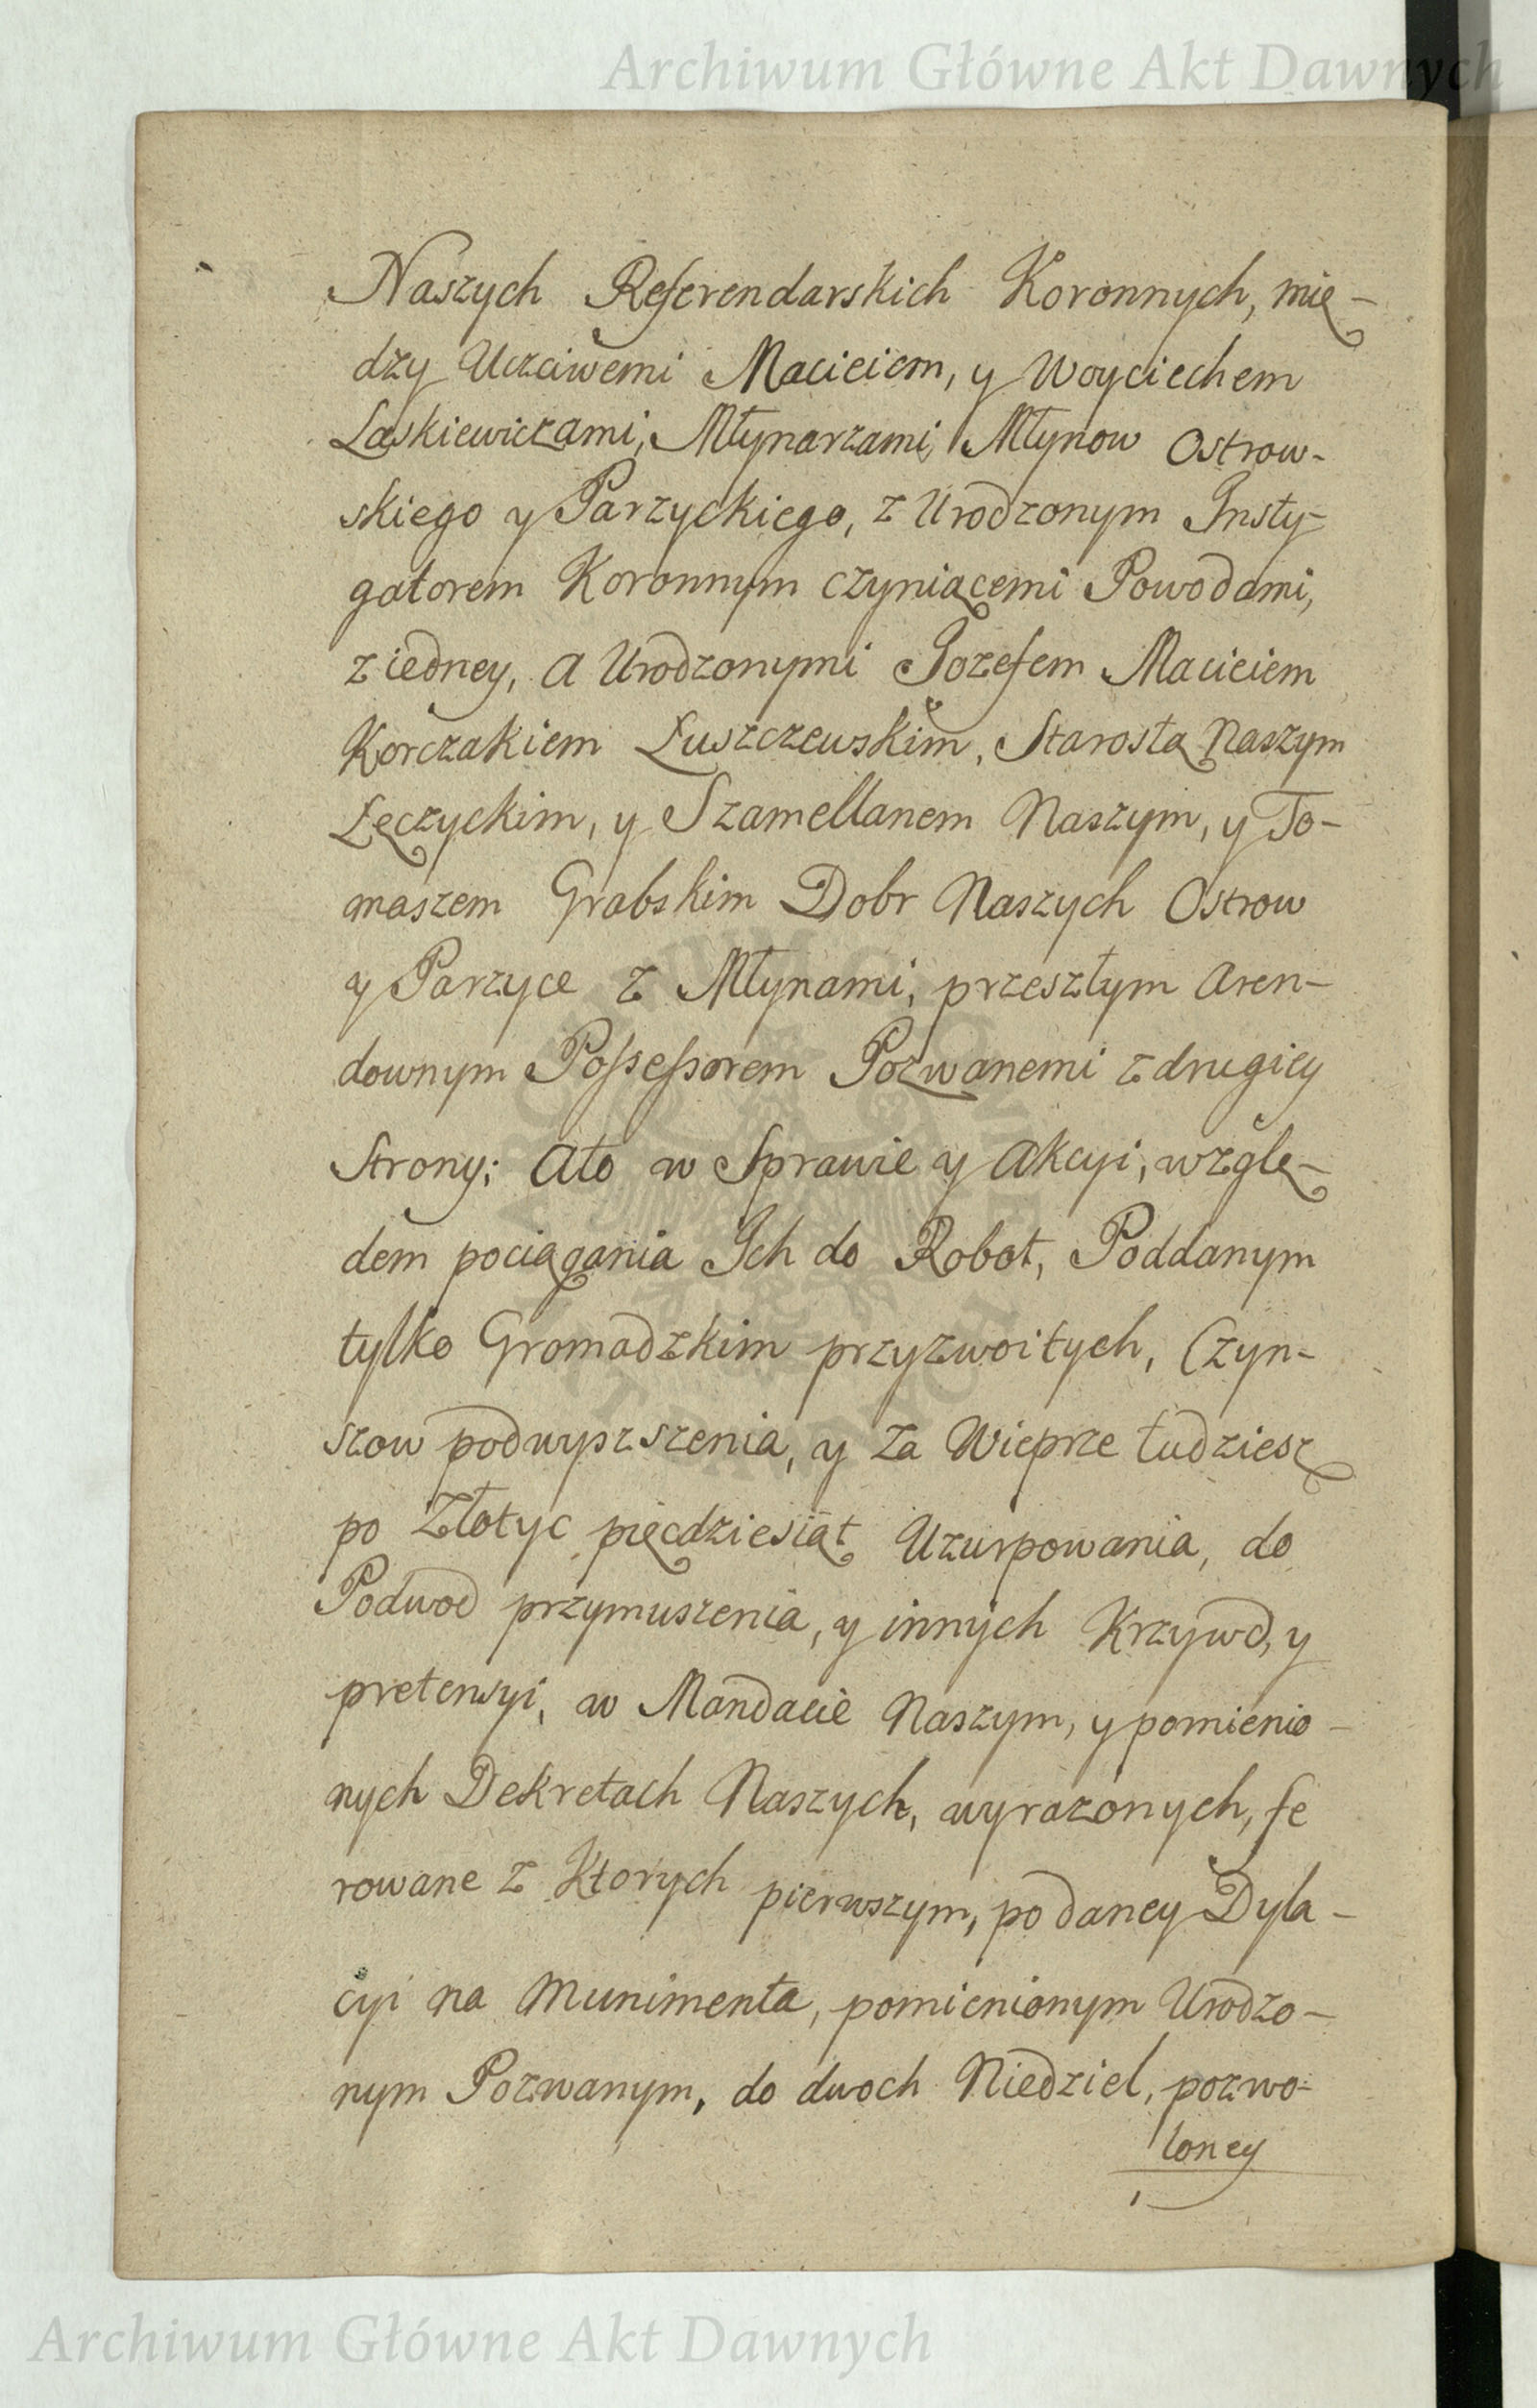 Archiwum Główne Akt Dawnych
Naszych Referendarskich Koronnych, mię-
dzy Uczciwemi Macieiem, y Woyciechem
Laskiewiczami, Młynarzami, Młynow Ostrow-
skiego y Parzyckiego, z Urodzonym Insty-
gatorem Koronnym czyniącemi Powodami,
z iedney, a Urodzonymi Jozefem Macieiem
Korczakiem Łuszczewskim, Starostą Naszym
Łęczyckim, y Szamellanem Naszym, y To-
maszem Grabskim Dobr Naszych Ostrow
y Parzyce z Młynami, przeszłym Aren-
downym Possessorem Pozwanemi z drugiey
Strony; Ato w Sprawie y Akcyi, wzglę-
dem pociągania Ich do Robot, Poddanym
tylko Gromadzkim przyzwoitych, Czyn-
szow podwyszszenia, y za Wieprze tudziesz
po Złotyc pięcdziesiąt Uzurpowania, do
Podwod przymuszenia, y innych Krzywd, y
pretensyi, w Mandacie Naszym, y pomienio-
nych Dekretach Naszych, wyrazonych, fe
rowane z Ktorych pierwszym, po daney Dyla-
cyi na Munimenta, pomienionym Urodzo-
nym Pozwanym, do dwoch Niedziel, pozwo-
loney
Archiwum Główne Akt Dawnych